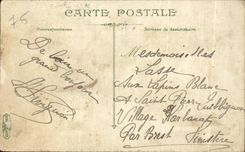 76
CARTE POSTALE
Correspondance
Adresse du destinataire
De loin un
grand bonjour
Mesdemoiselles
Lasse
Aux Lapins Blanc
A Saint Pierre Quilbignon
Village
Par Brest
Finistère